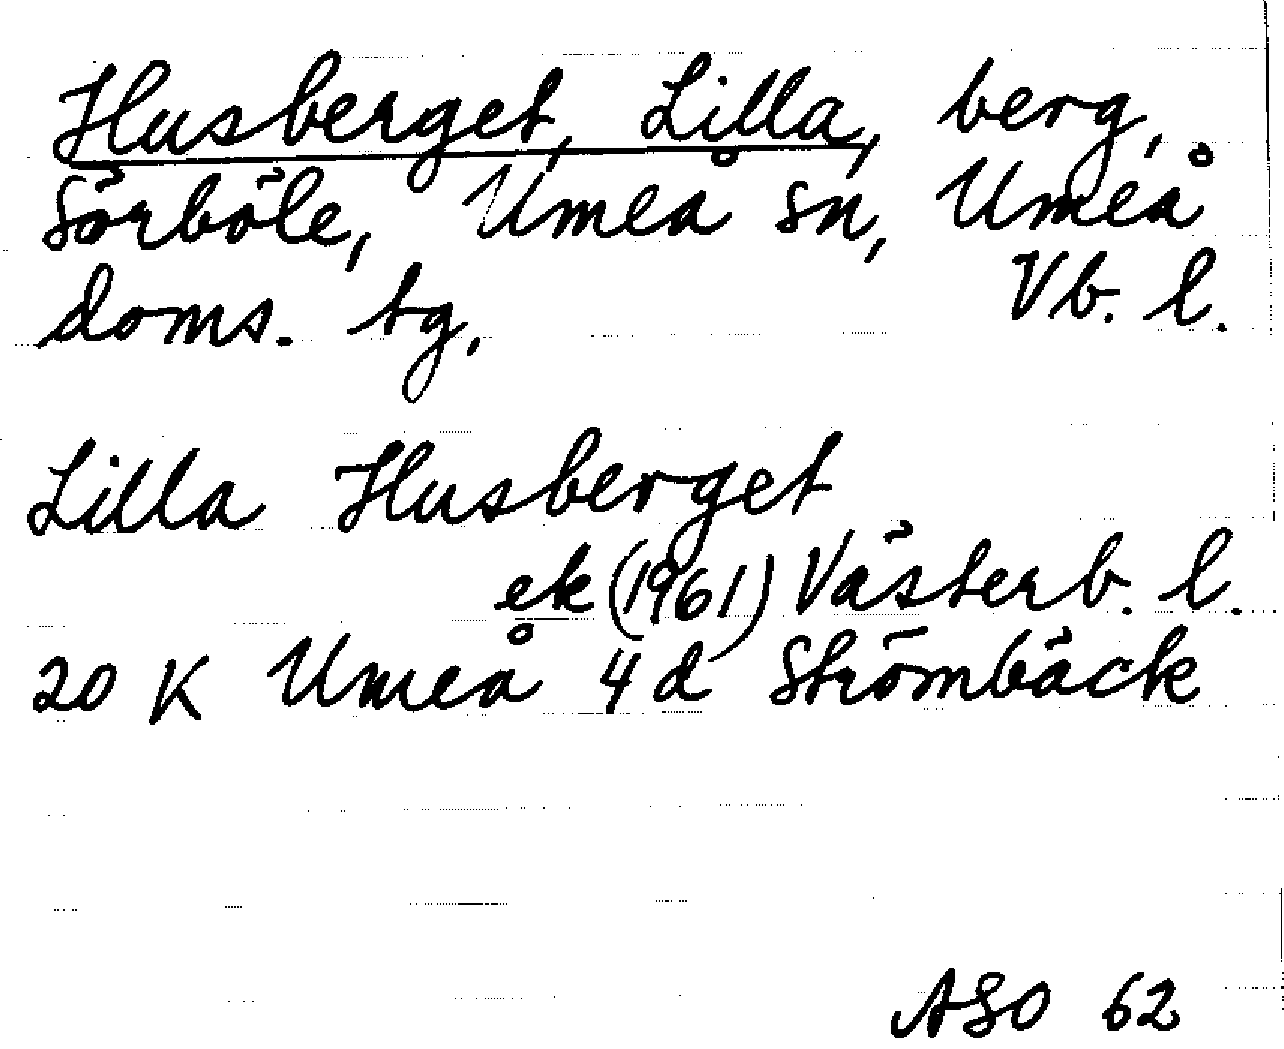 Husberget, Lilla, berg,
Sörböle, Umeå sn, Umeå
doms. tg. Vb. l.
Lilla Husberget
ek (1961) Västerb. l.
20 K Umeå 4d Strömbäck
ASO 62